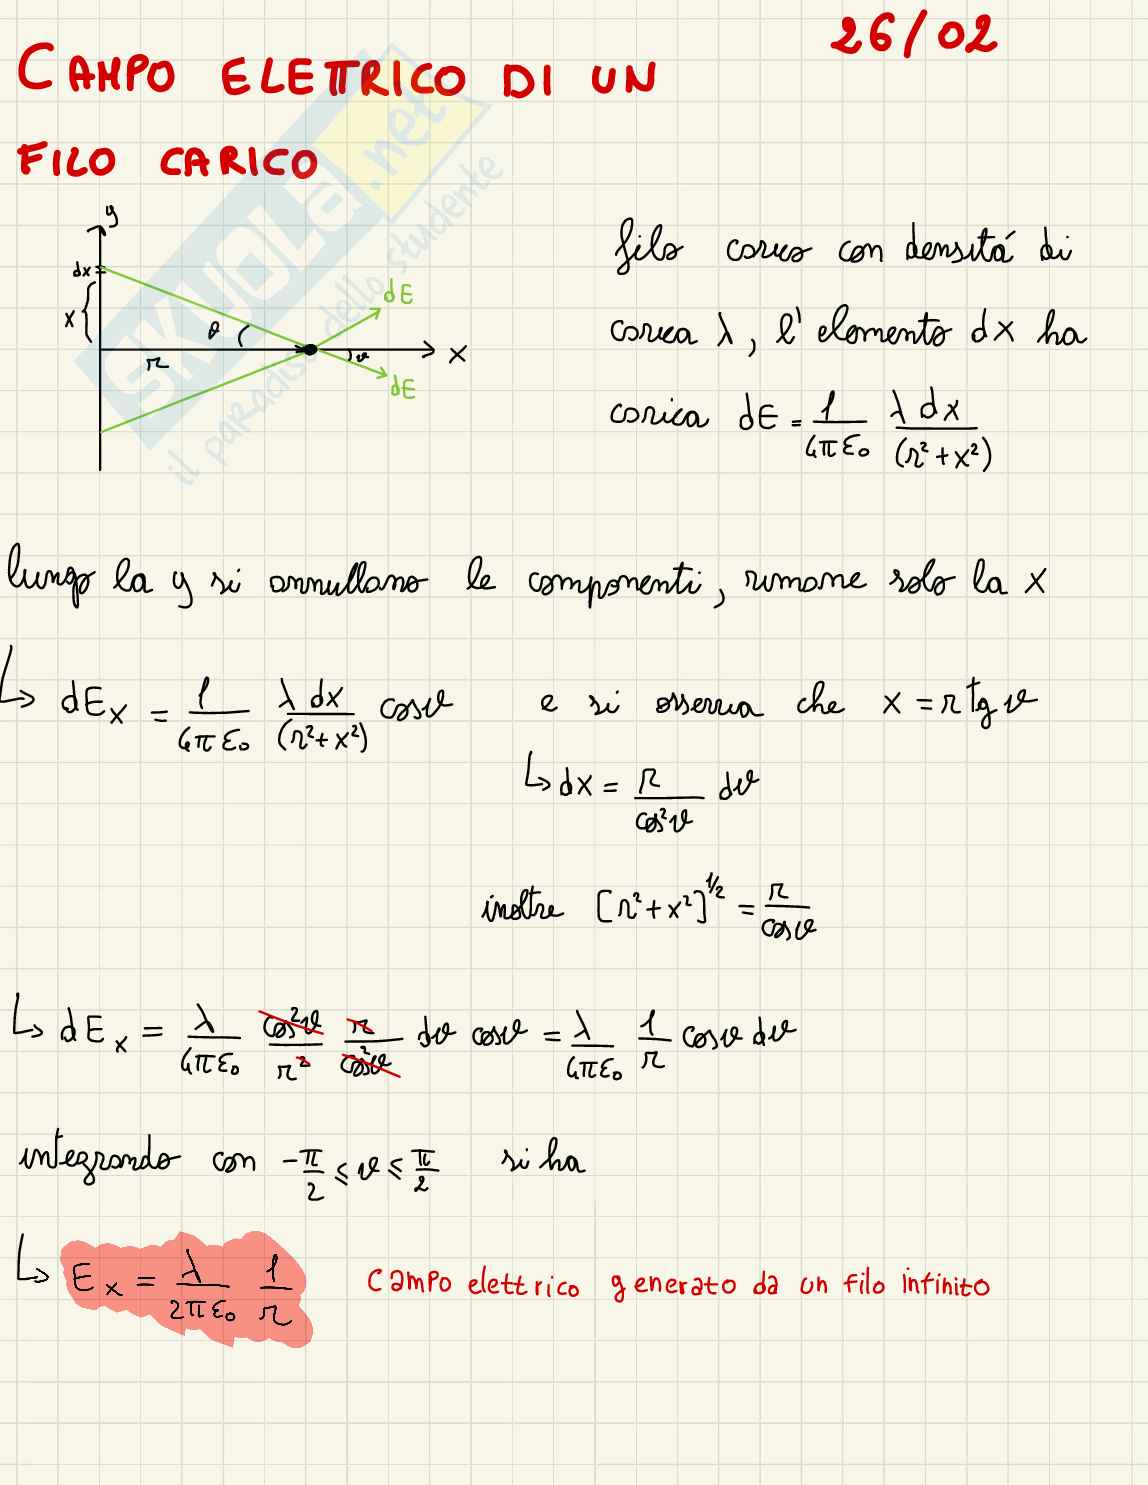 26/02
CAMPO ELETTRICO DI UN
FILO CARICO
SKUOLA.net
il paradiso dello studente
y
dx
x
θ
r
dE
ϑ
x
dE
filo carico con densitá di
carica λ, l'elemento dx ha
carica dE = 1/4πε₀ λ dx/(r²+x²)
lungo la y si annullano le componenti, rimane solo la x
↳ dEx = 1/4πε₀ λ dx/(r²+x²) cosϑ e si osserva che x = r tg ϑ
↳ dx = r/cos²ϑ dϑ
inoltre [r²+x²]^1/2 = r/cosϑ
↳ dEx = λ/4πε₀ cos²ϑ/r² r/cos²ϑ dϑ cosϑ = λ/4πε₀ 1/r cosϑ dϑ
integrando con -π/2 ⩽ ϑ ⩽ π/2 si ha
↳ Ex = λ/2πε₀ 1/r Campo elettrico generato da un filo infinito